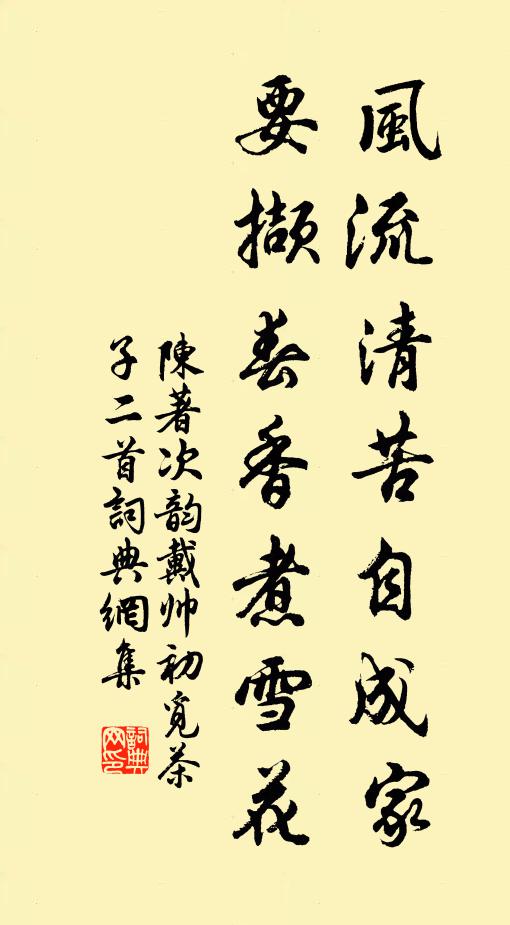 風流清苦自成家
要擷春香煮雪花
陳著次韵戴帅初覓茶
子二首詞典網集
詞典网印